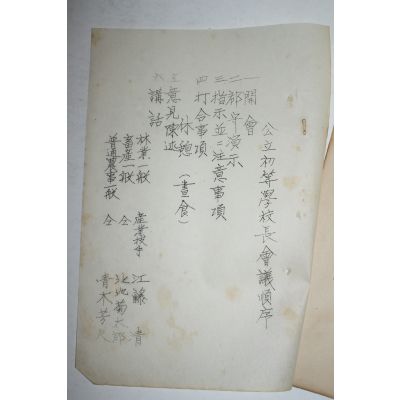 公立初等學校長會議順序
一 開會
二 郡守演示
三 指示並ニ注意事項
四 打合事項
休憩 (晝食)
五 意見陳述
六 講話
林業一般 産業技手 江藤 清
畜産一般 仝 菊太郎
普通農事一般 仝 青木芳